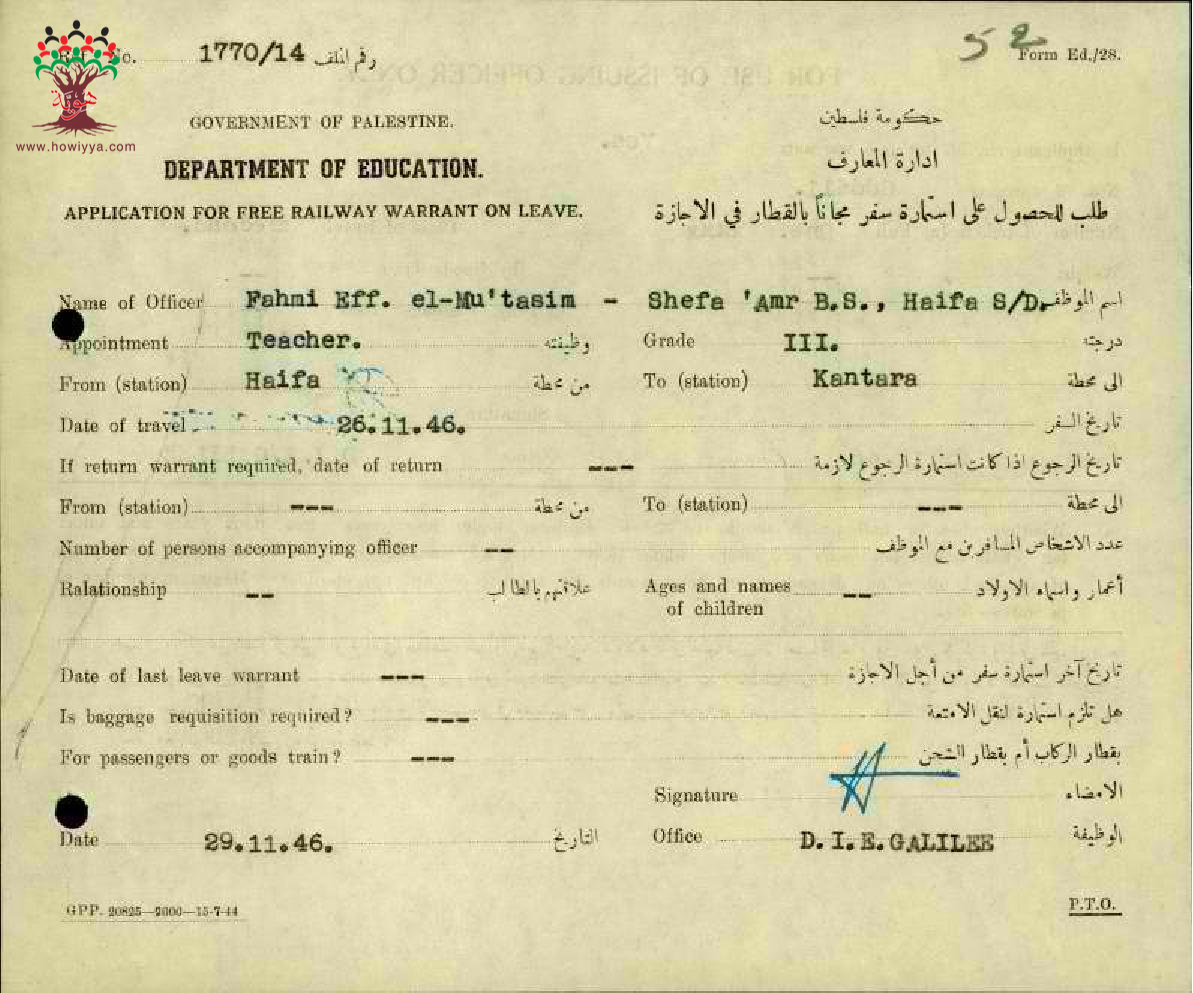 Ref. No. 1770/14 رقم الملف
52
Form Ed./28.
www.howiyya.com
GOVERNMENT OF PALESTINE. حكومة فلسطين
DEPARTMENT OF EDUCATION. ادارة المعارف
APPLICATION FOR FREE RAILWAY WARRANT ON LEAVE. طلب للحصول على استمارة سفر مجاناً بالقطار في الاجازة
Name of Officer Fahmi Eff. el-Mu'tasim - Shefa 'Amr B.S., Haifa S/D. اسم الموظف
Appointment Teacher. وظيفته Grade III. درجته
From (station) Haifa من محطة To (station) Kantara الى محطة
Date of travel 26.11.46. تاريخ السفر
If return warrant required, date of return --- تاريخ الرجوع اذا كانت استمارة الرجوع لازمة
From (station) --- من محطة To (station) --- الى محطة
Number of persons accompanying officer -- عدد الاشخاص المسافرين مع الموظف
Ralationship -- علاقتهم بالطالب Ages and names of children -- أعمار واسماء الاولاد
Date of last leave warrant --- تاريخ آخر استمارة سفر من أجل الاجازة
Is baggage requisition required? --- هل تلزم استمارة لنقل الامتعة
For passengers or goods train? --- بقطار الركاب أم بقطار الشحن
Signature الامضاء
Date 29.11.46. التاريخ Office D.I.E.GALILEE الوظيفة
GPP. 20825—2000—15-7-44
P.T.O.